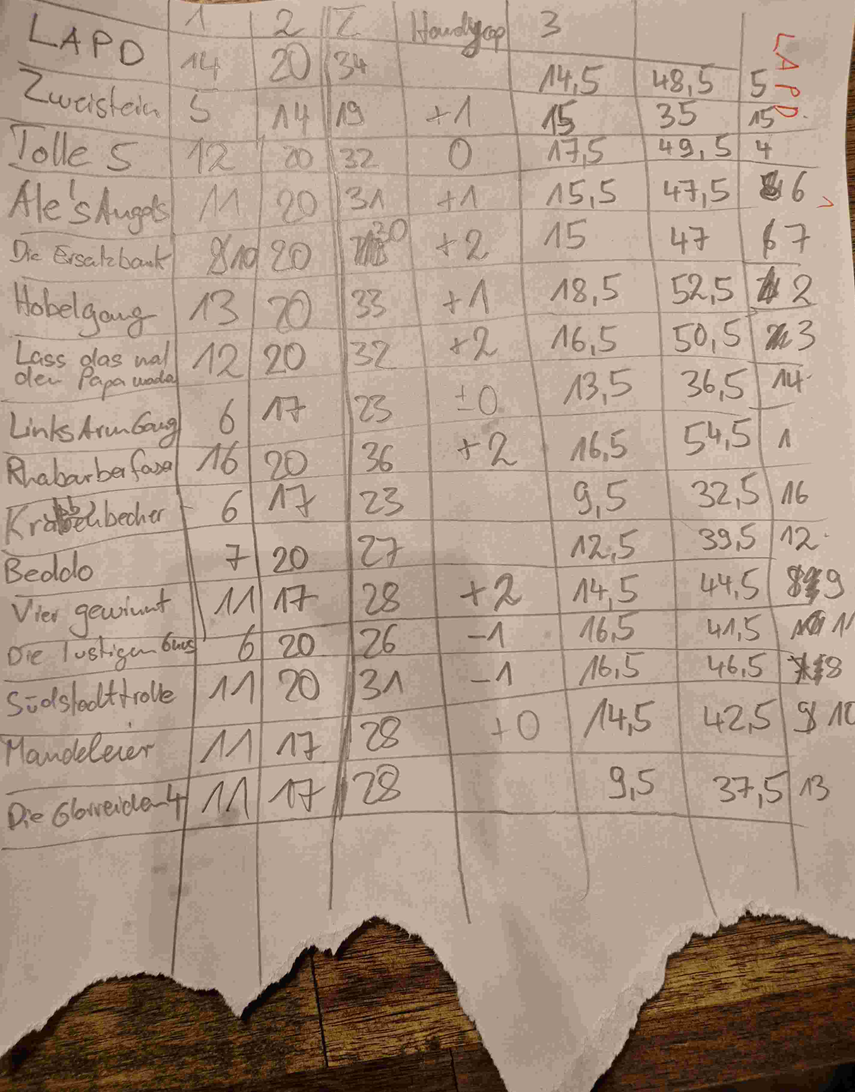 1 2 Σ Handycap 3
LAPD 14 20 34 14,5 48,5 5
LAPD
Zweistein 5 14 19 +1 15 35 15
Tolle 5 12 20 32 0 17,5 49,5 4
Ale's Angels 11 20 31 +1 15,5 47,5 6
Die Ersatzbank 10 20 30 +2 15 47 7
Hobelgang 13 20 33 +1 18,5 52,5 2
Lass das mal 12 20 32 +2 16,5 50,5 3
den Papa
LinksArmGang 6 17 23 ±0 13,5 36,5 14
Rhabarberfass 16 20 36 +2 16,5 54,5 1
Krabbehbecher 6 17 23 9,5 32,5 16
Beddo 7 20 27 12,5 39,5 12
Vier gewinnt 11 17 28 +2 14,5 44,5 9
Die lustigen 6 20 26 -1 16,5 41,5 11
Südstadttrolle 11 20 31 -1 16,5 46,5 8
Mandeleier 11 17 28 +0 14,5 42,5 10
Die Glorreichen 4 11 17 28 9,5 37,5 13